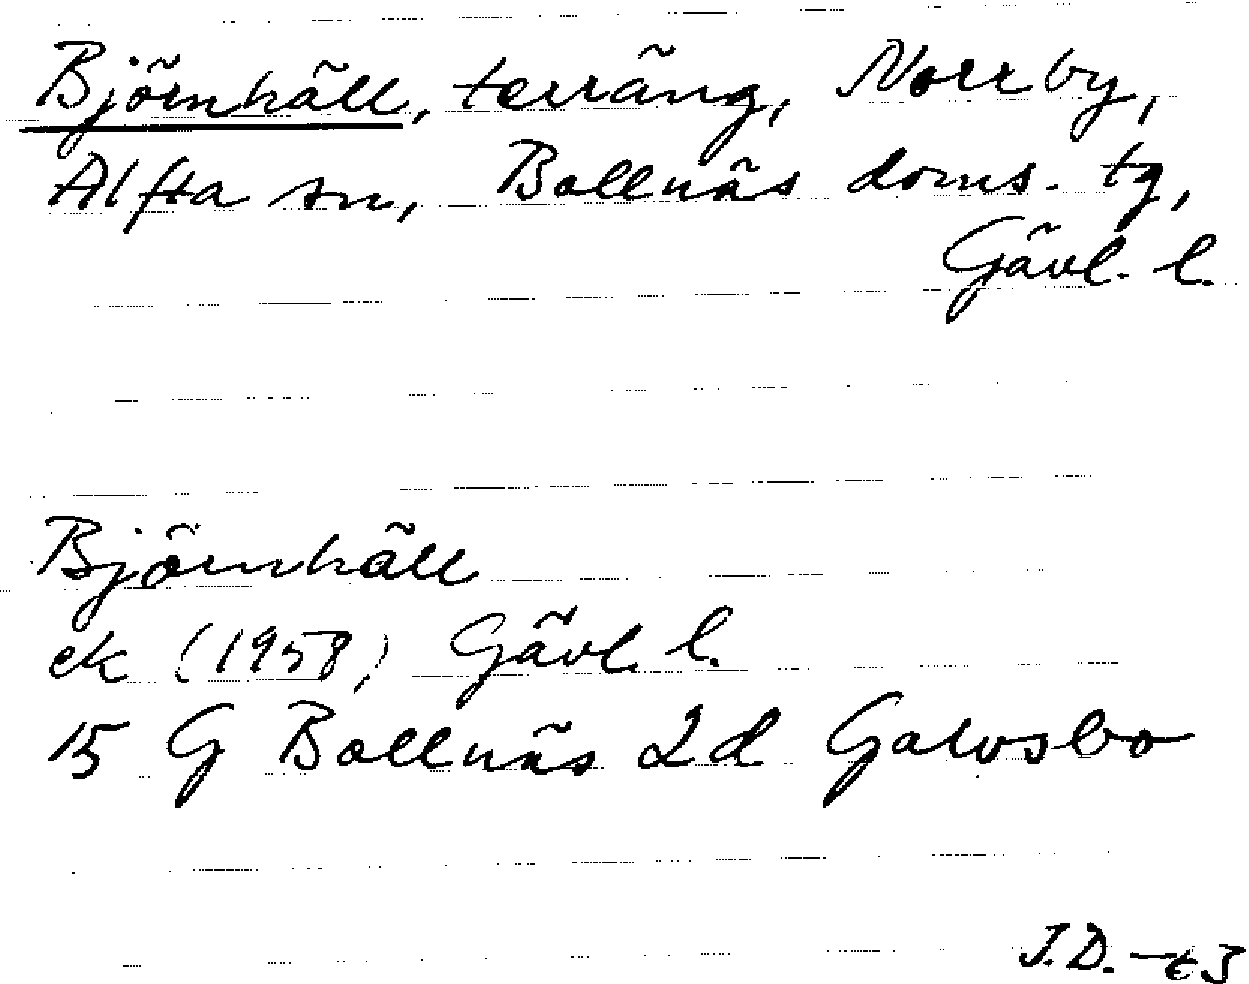 Björnhäll, terräng, Norrby,
Alfta sn, Bollnäs doms. tg,
Gävl. l.
Björnhäll
ek (1958) Gävl. l.
15 G Bollnäs 2d Galvsbo
J.D. -63